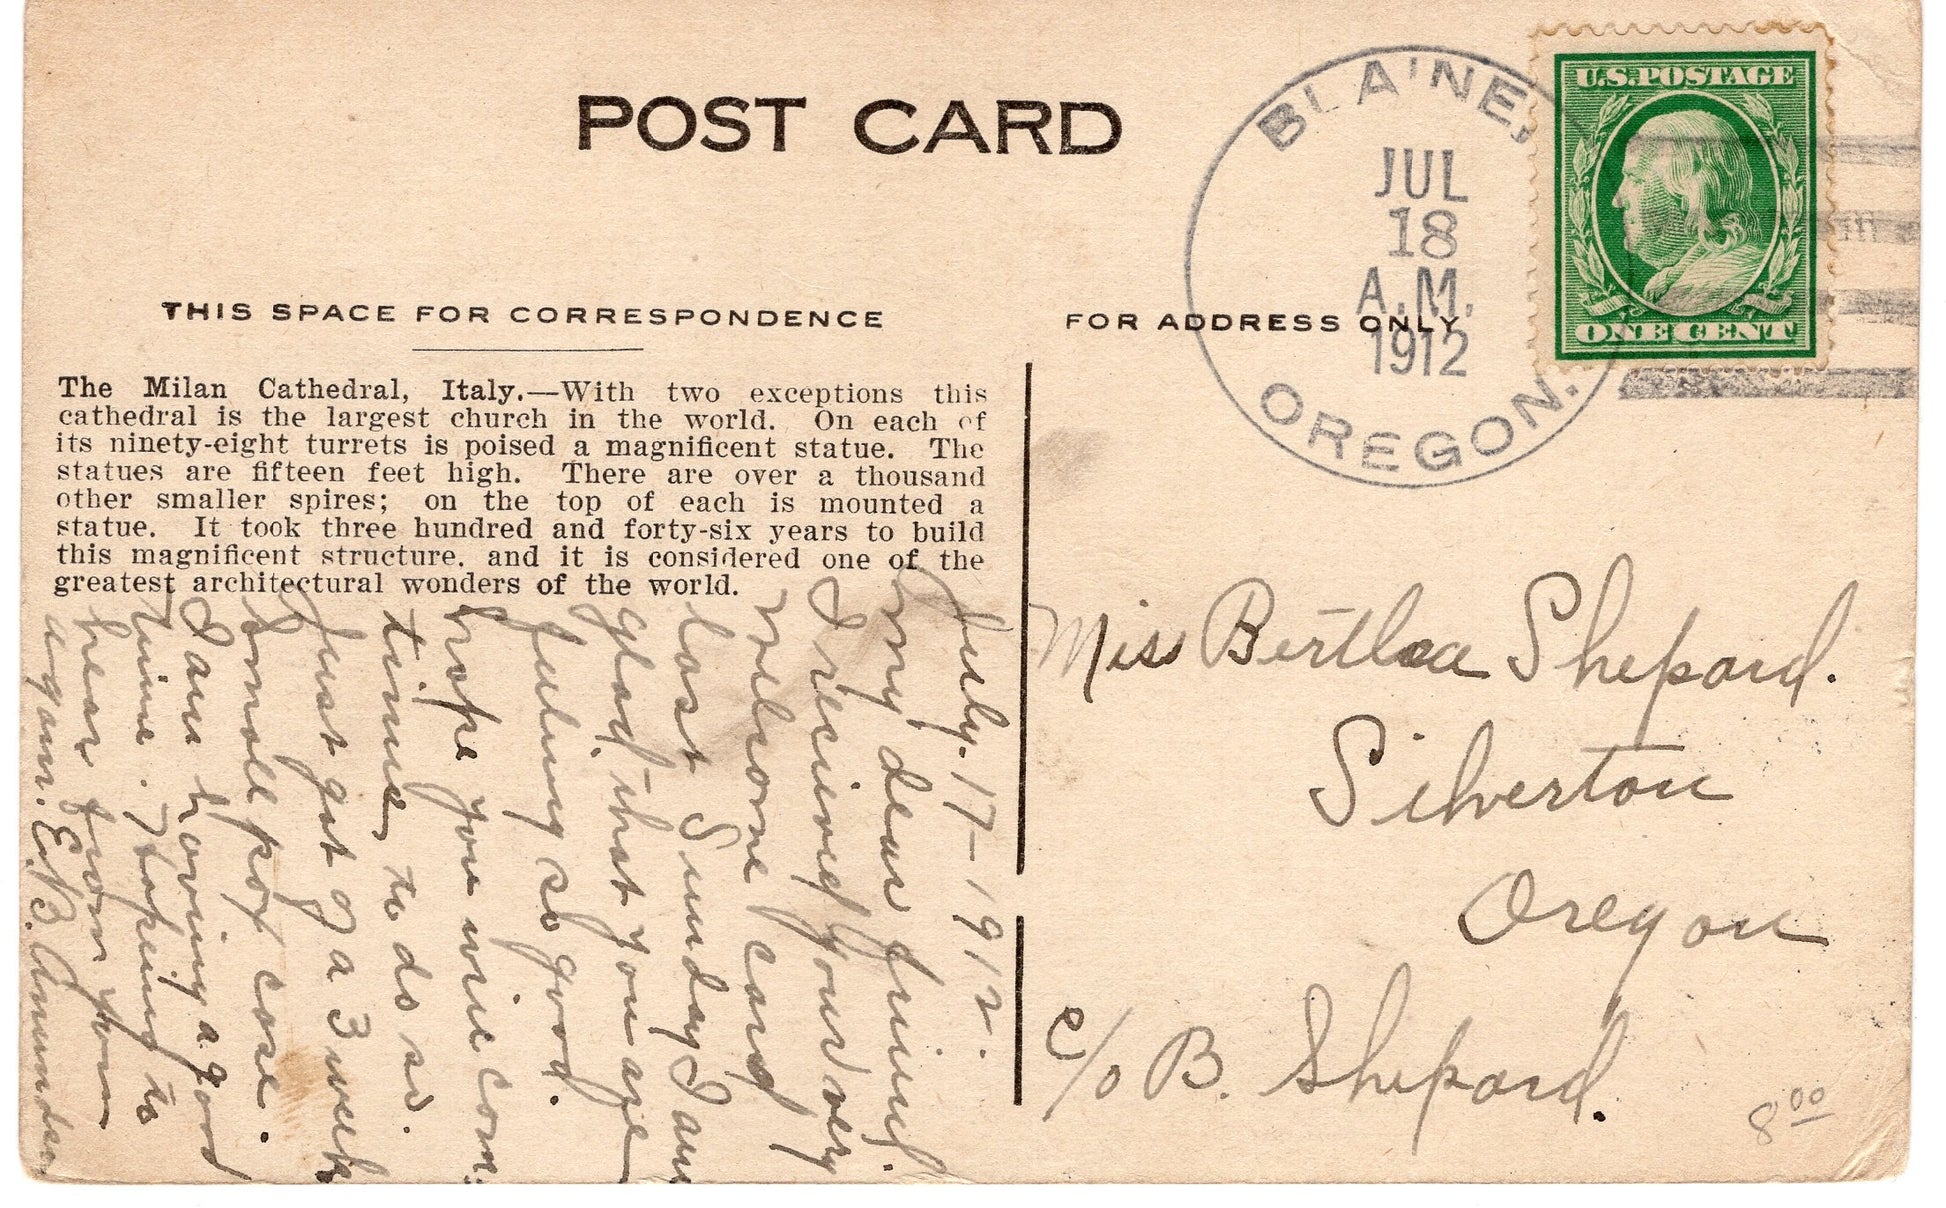 POST CARD
BLAINE,
JUL
18
A.M.
1912
OREGON.
U.S. POSTAGE
ONE CENT
THIS SPACE FOR CORRESPONDENCE
FOR ADDRESS ONLY
The Milan Cathedral, Italy.—With two exceptions this
cathedral is the largest church in the world. On each of
its ninety-eight turrets is poised a magnificent statue. The
statues are fifteen feet high. There are over a thousand
other smaller spires; on the top of each is mounted a
statue. It took three hundred and forty-six years to build
this magnificent structure, and it is considered one of the
greatest architectural wonders of the world.
July. 17-1912.
my dear friend.
I received your very
welcome card
last Sunday I am
glad that you are
feeling so good.
hope you will com.
time, to do so.
Just got of a 3 week
Small pox case.
I am having a good
time. Hopeing to
hear from you
again. E.B.
Miss Bertha Shepard.
Silverton
Oregon
c/o B. Shepard.
8 00